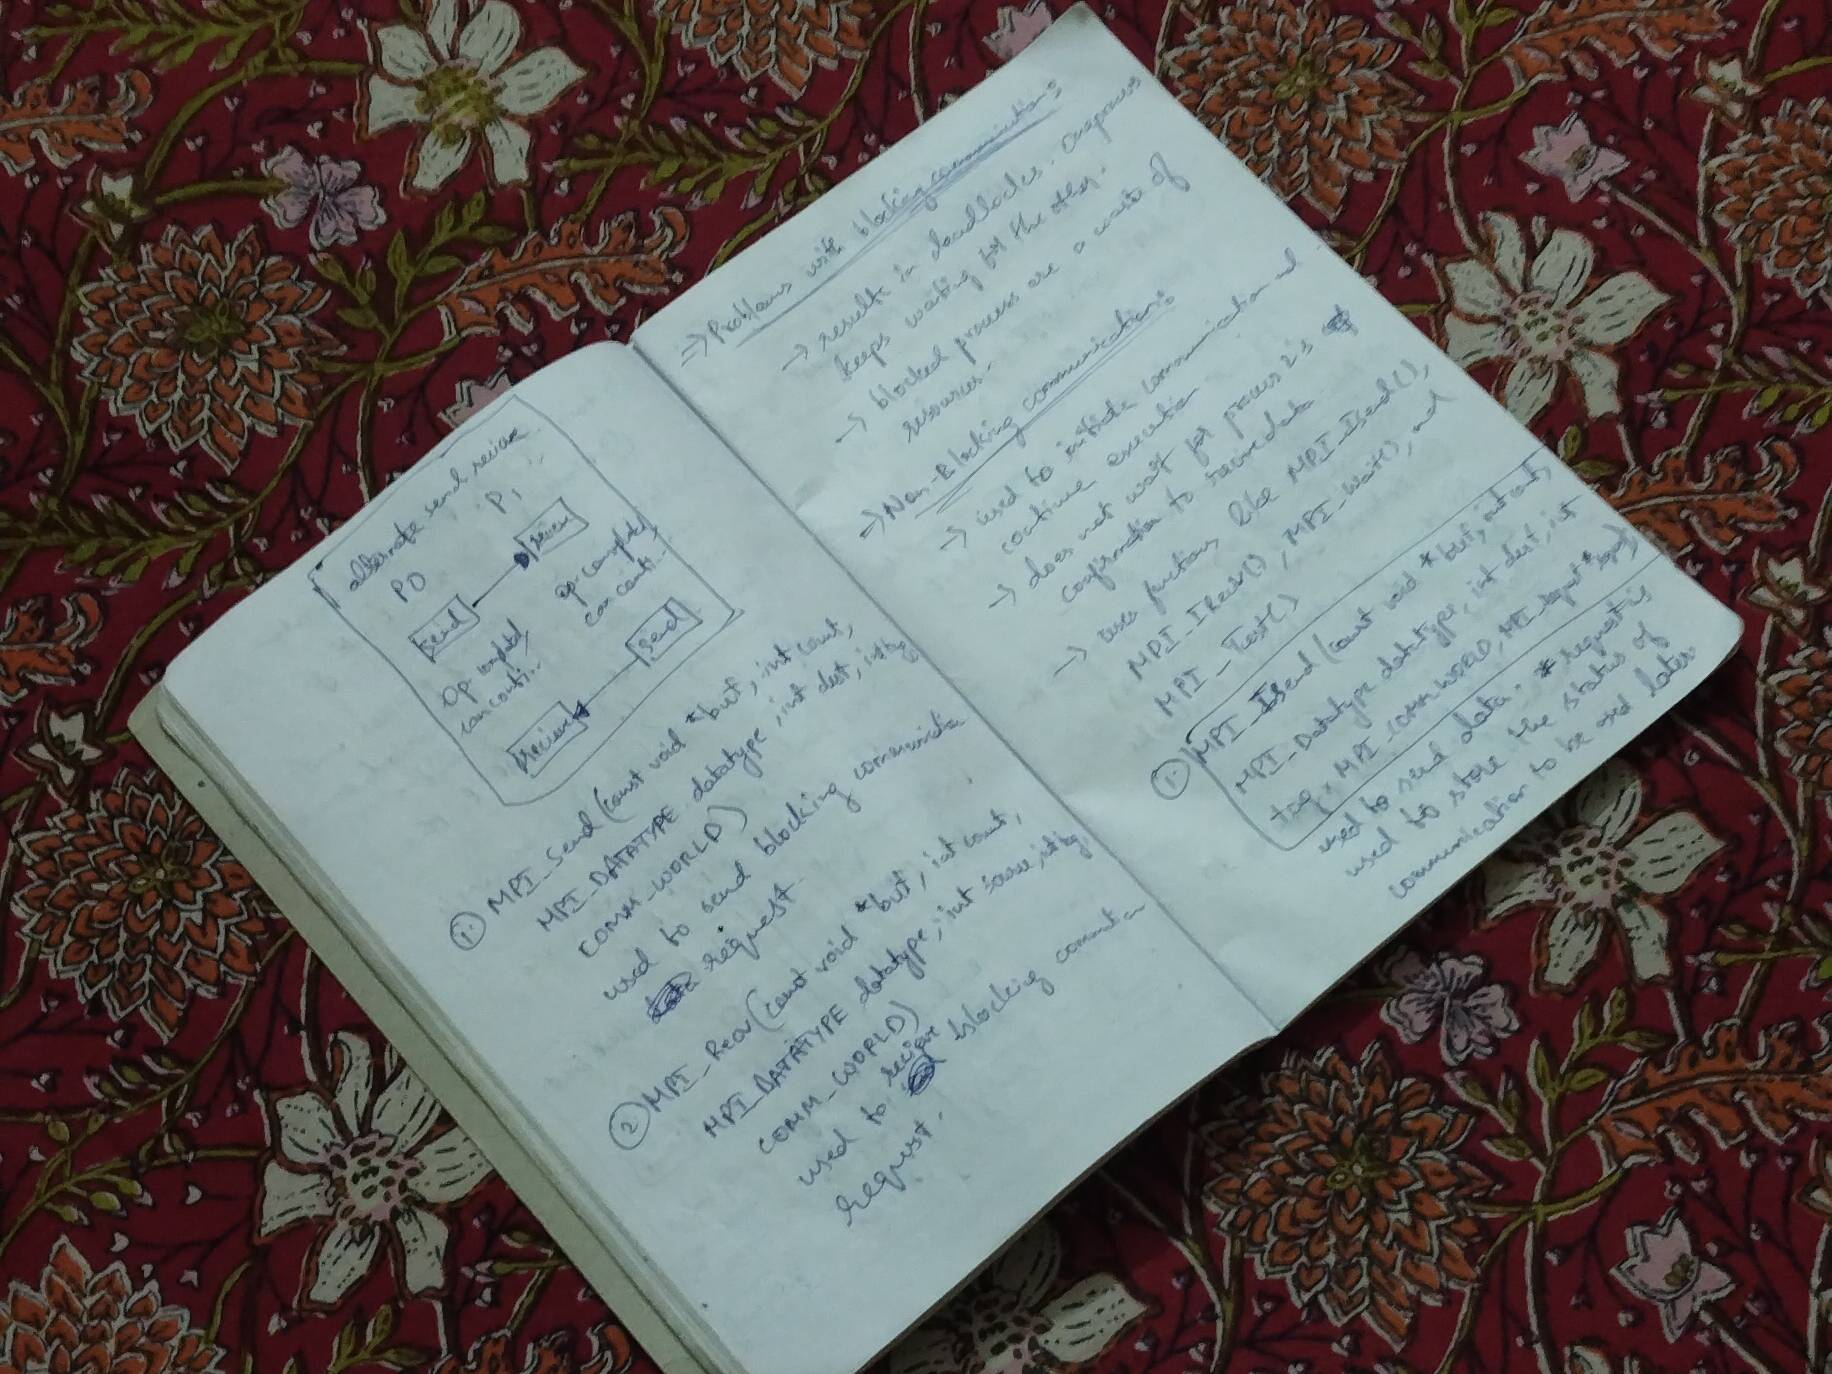 alternate send recieve
P0 P1
send recieve
op. completed,
can conti..
Op. completed,
can conti..
send
recieve
1. MPI_Send(const void *buf, int count,
MPI_DATATYPE datatype, int dest, int tag
COMM_WORLD)
used to send blocking communication
request.
2 MPI_Recv(const void *buf, int count,
MPI_DATATYPE datatype, int source, int tag,
COMM_WORLD)
used to recieve blocking
request.
=> Problems with blocking communications
-> results in deadlocks.
keeps waiting for the other.
-> blocked process are a waste of
resources.
=> Non-Blocking communications:
-> used to initiate communication and
continue execution
-> does not wait for process 2's
confirmation to recieve data
-> uses functions like MPI_Isend(),
MPI_Irecv(), MPI_Wait(), and
MPI_Test()
1. MPI_Isend(const void *buf, int count,
MPI_Datatype datatype, int dest, int
tag, MPI_COMM_WORLD, MPI_Request *request)
used to send data. * request is
used to store the status of
communication to be used later